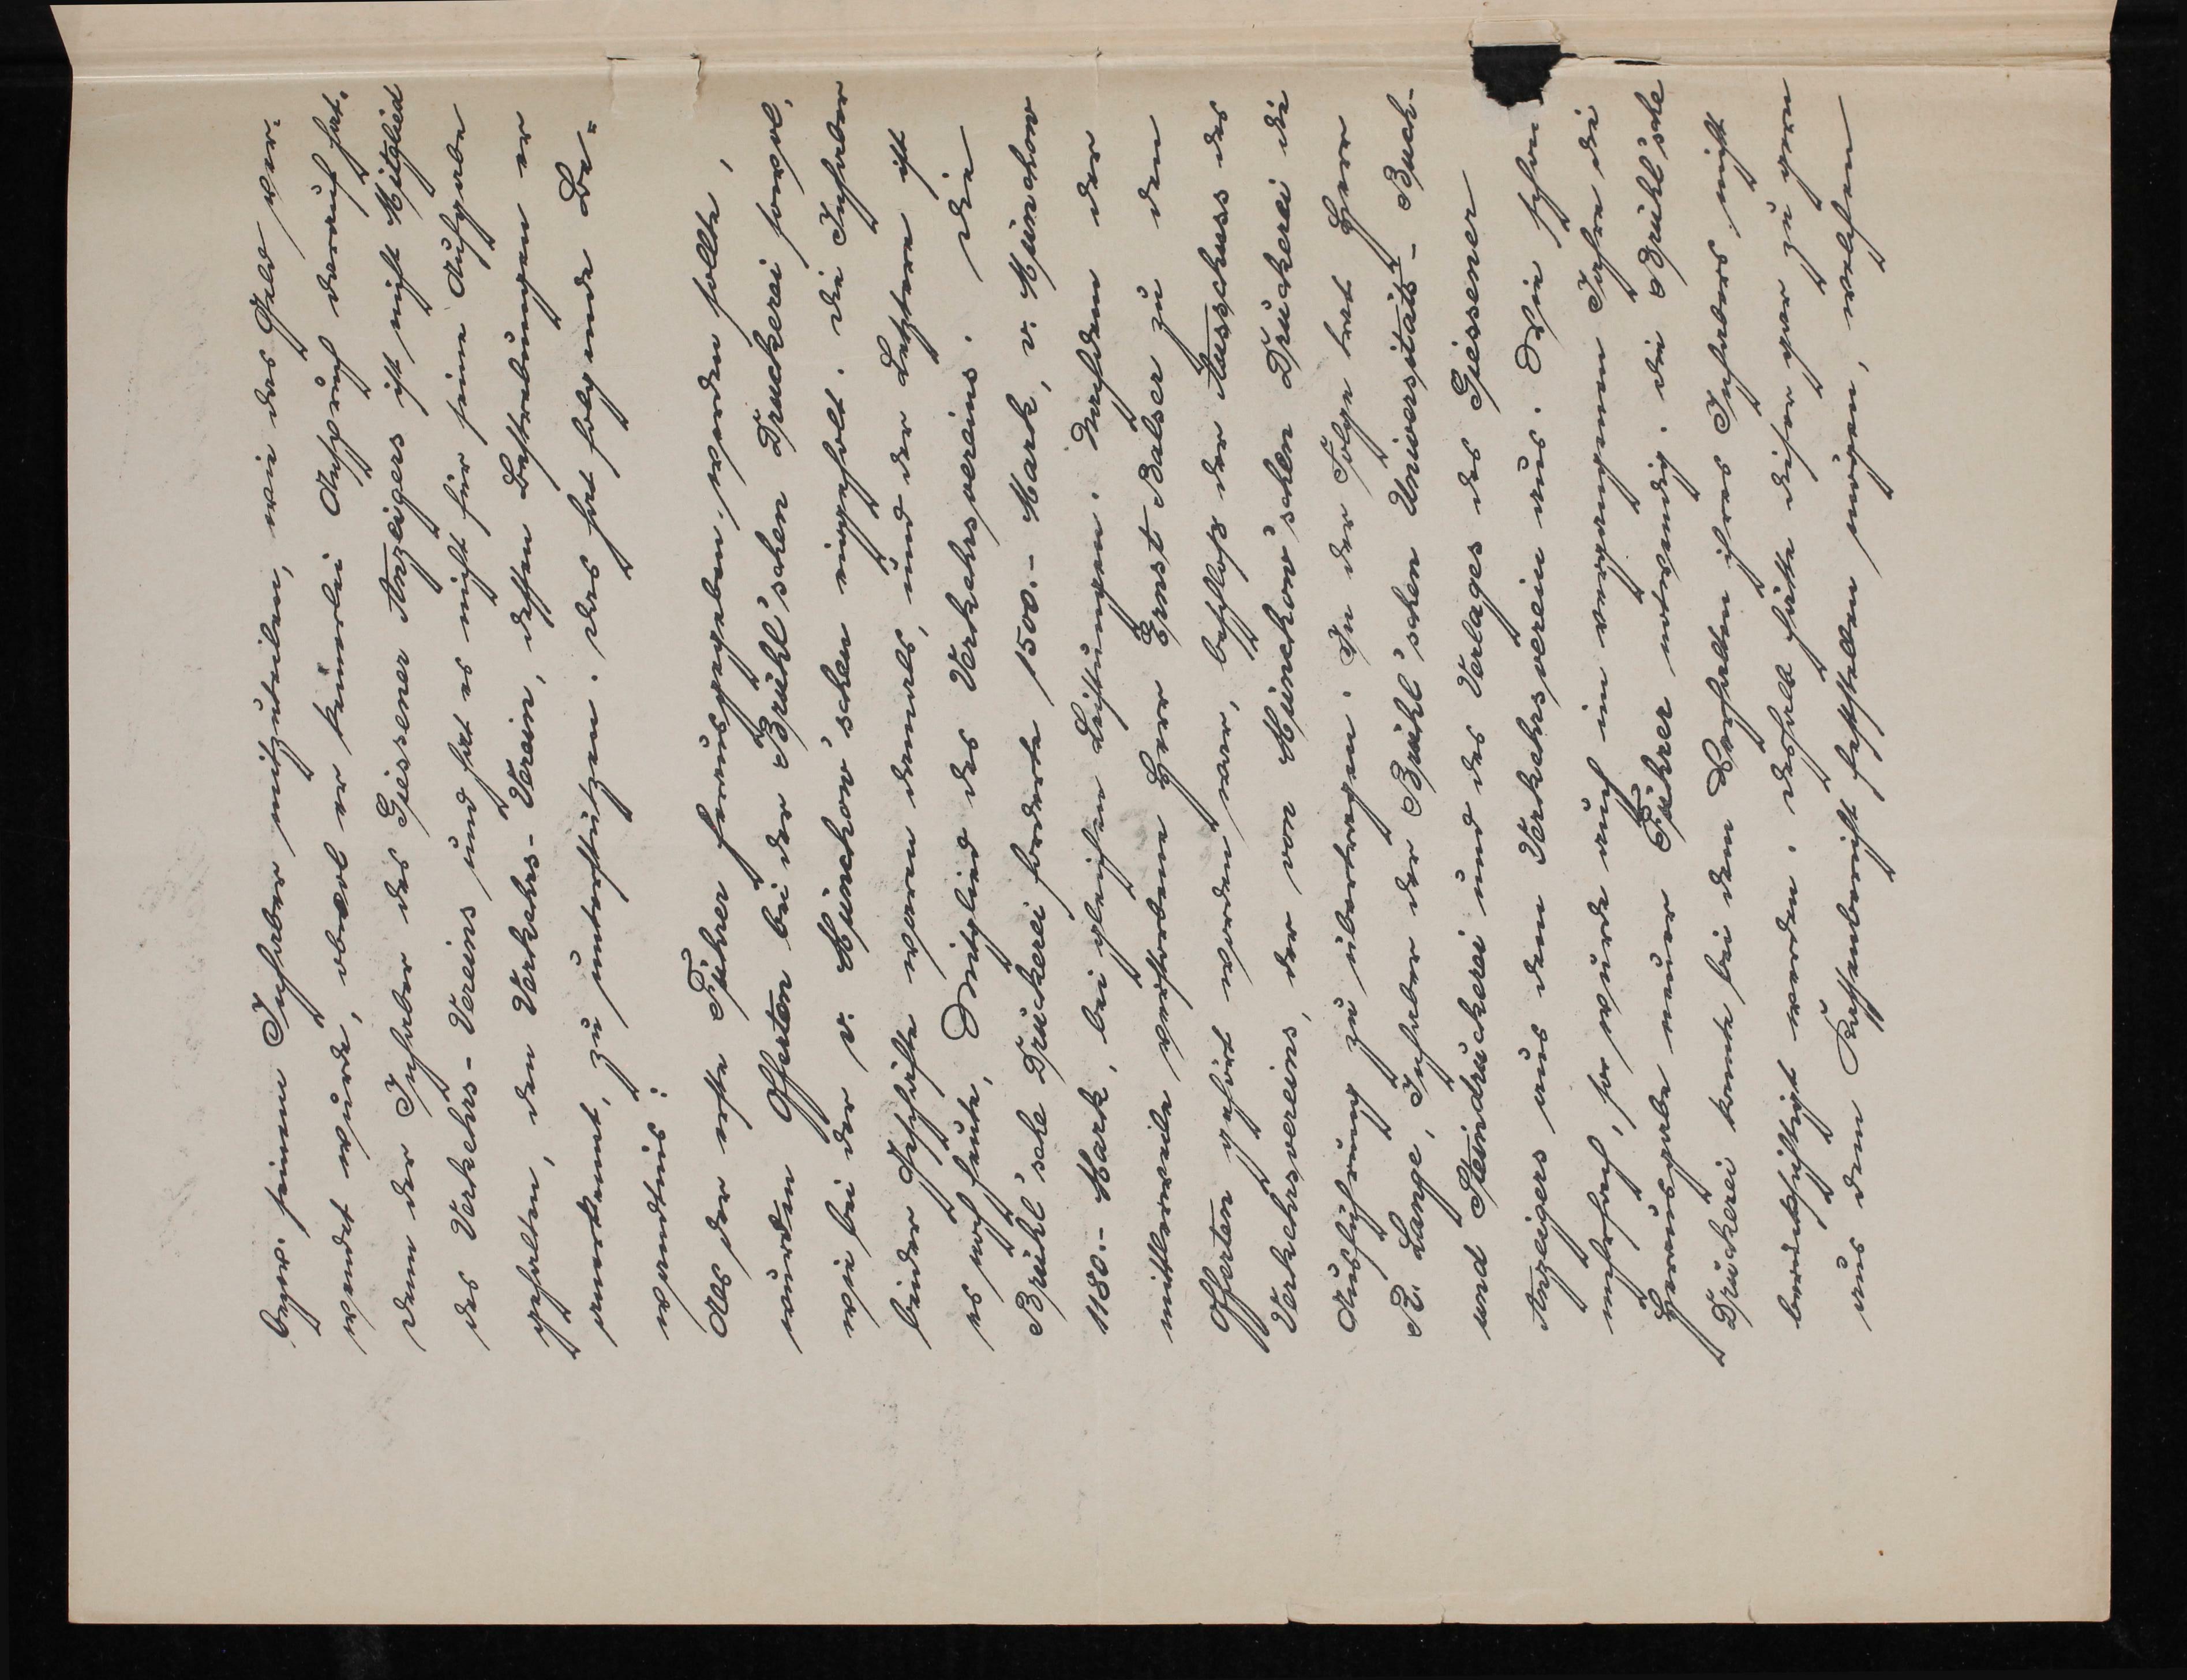 bezw. seinem Inhaber mitzuteilen, wie das Geld ver-
wendet würde, obwol er keinerlei Anspruch darauf hat.
denn der Inhaber des Giessener Anzeigers ist nicht Mitglied
des Verkehrs-Vereins und hat es nicht für seine Aufgabe
gehalten, den Verkehrs-Verein, dessen Bestrebungen er
anerkennt, zu unterstützen. Das hat folgende Be-
wandtnis:
Als der erste Führer herausgegeben werden sollte,
wurden Offerten bei der Brühl'schen Druckerei sowol,
wie bei der v. Münchow'schen eingeholt. Die Inhaber
beider Geschäfte waren damals, und der Letztere ist
es noch heute, Mitglied des Verkehrsvereins. Die
Brühl'sche Druckerei forderte 1500.- Mark, v. Münchow
1180.- Mark, bei gleichen Leistungen. Nachdem der
mittlerweile verstorbene Herr Ernst Balser zu den
Offerten gehört worden war, beschloß der Ausschuss des
Verkehrsvereins, der von Münchow'schen Druckerei die
Ausführung zu übertragen. In der Folge trat Herr
R. Lange, Inhaber der Brühl'schen Universitäts-Buch-
und Steindruckerei und des Verlages des Giessener
Anzeigers aus dem Verkehrsverein aus. Wie schon
mehrfach, so wurde auch im vergangenen Jahre die
Herausgabe neuer Führer notwendig. Die Brühl'sche
Druckerei konnte bei dem Verhalten ihres Inhabers nicht
berücksichtigt werden. Deshalb hätte dieser gar zu gern
aus dem Kassenbericht feststellen mögen, welchen